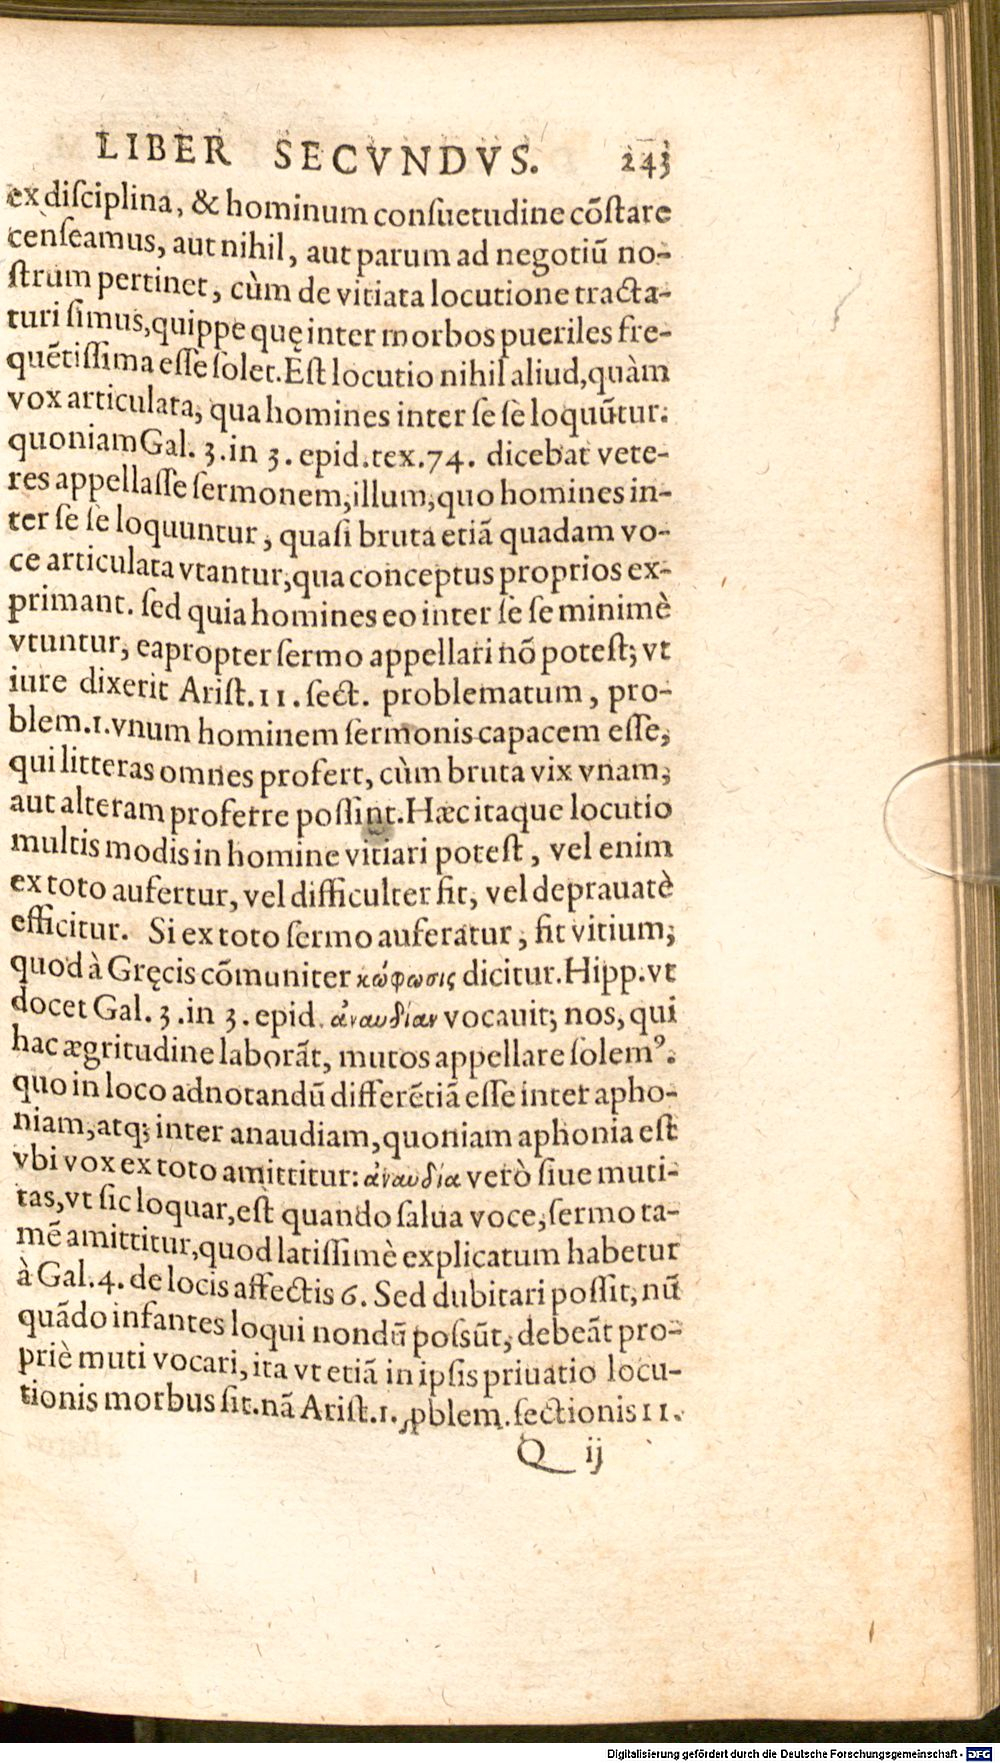 LIBER SECVNDVS. 243
ex disciplina, & hominum consuetudine cōstare
censeamus, aut nihil, aut parum ad negotiū no-
strum pertinet, cùm de vitiata locutione tracta-
turi simus, quippe quę inter morbos pueriles fre-
quētissima esse solet. Est locutio nihil aliud, quàm
vox articulata, qua homines inter se sè loquūtur.
quoniam Gal. 3. in 3. epid. tex. 74. dicebat vete-
res appellasse sermonem, illum, quo homines in-
ter se se loquuntur, quasi bruta etiā quadam vo-
ce articulata vtantur, qua conceptus proprios ex-
primant. sed quia homines eo inter se se minimè
vtuntur, eapropter sermo appellari nō potest, vt
iure dixerit Arist. 11. sect. problematum, pro-
blem. 1. vnum hominem sermonis capacem esse,
qui litteras omnes profert, cùm bruta vix vnam,
aut alteram proferre possint. Hæc itaque locutio
multis modis in homine vitiari potest, vel enim
ex toto aufertur, vel difficulter fit, vel deprauatè
efficitur. Si ex toto sermo auferatur, fit vitium,
quod à Gręcis cōmuniter κώφωσις dicitur. Hipp. vt
docet Gal. 3. in 3. epid. ἀναυδίαν vocauit; nos, qui
hac ægritudine laborāt, mutos appellare solemꝰ.
quo in loco adnotandū differētiā esse inter apho-
niam, atq; inter anaudiam, quoniam aphonia est
vbi vox ex toto amittitur: ἀναυδία verò siue muti-
tas, vt sic loquar, est quando salua voce, sermo ta-
mē amittitur, quod latissimè explicatum habetur
à Gal. 4. de locis affectis 6. Sed dubitari possit, nū
quādo infantes loqui nondū possūt, debeāt pro-
priè muti vocari, ita vt etiā in ipsis priuatio locu-
tionis morbus sit. nā Arist. 1. ꝓblem. sectionis 11.
Q ij
Digitalisierung gefördert durch die Deutsche Forschungsgemeinschaft - DFG